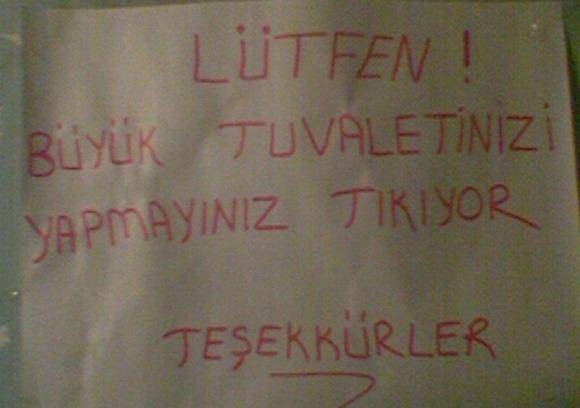 LÜTFEN !
BÜYÜK TUVALETİNİZİ
YAPMAYINIZ TIKIYOR
TEŞEKKÜRLER